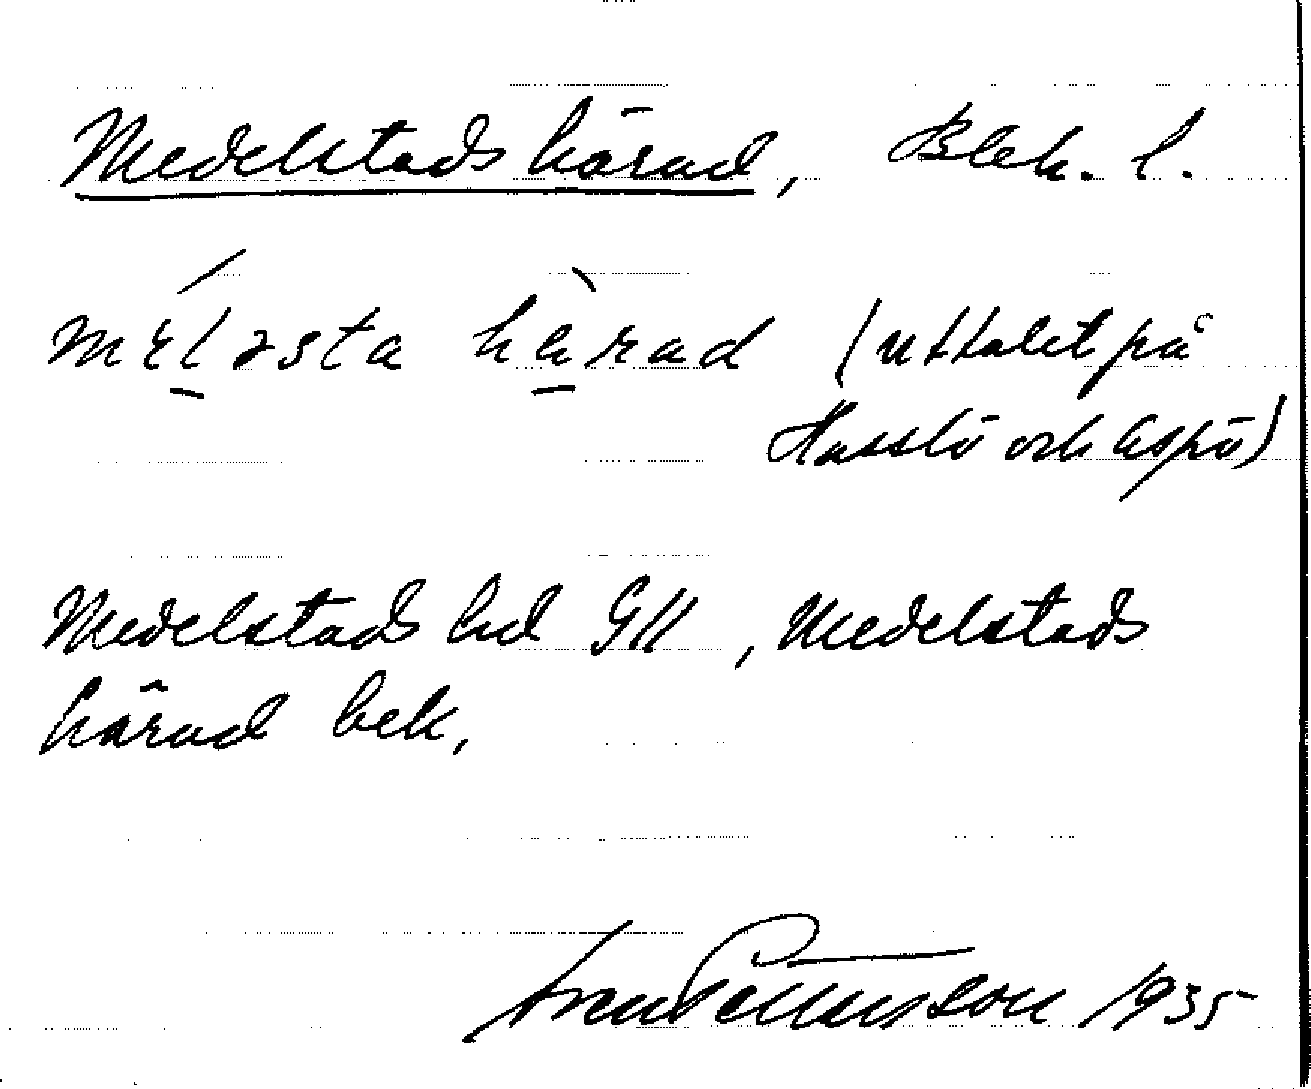 Medelstads härad, Blek. l.
mɛl əsta härad (uttalet på
Hasslö och Aspö)
Medelstads hd GK, Medelstads
härad bek,
Sven Pettersson 1935